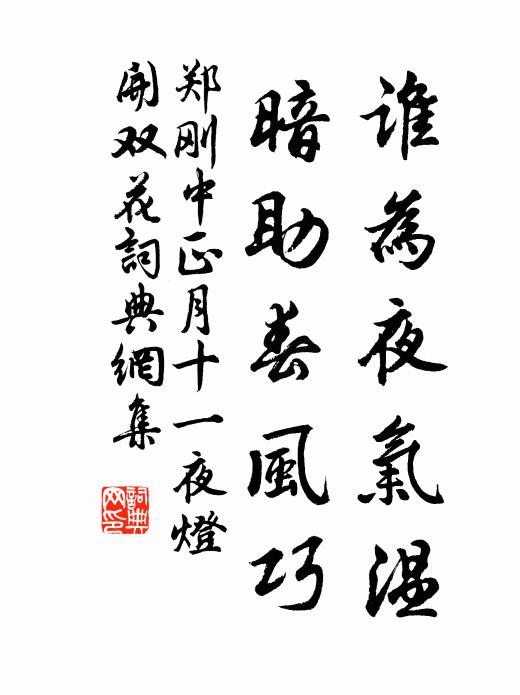 谁為夜氣温
暗助春風巧
郑刚中正月十一夜燈
開双花詞典網集
詞典网印